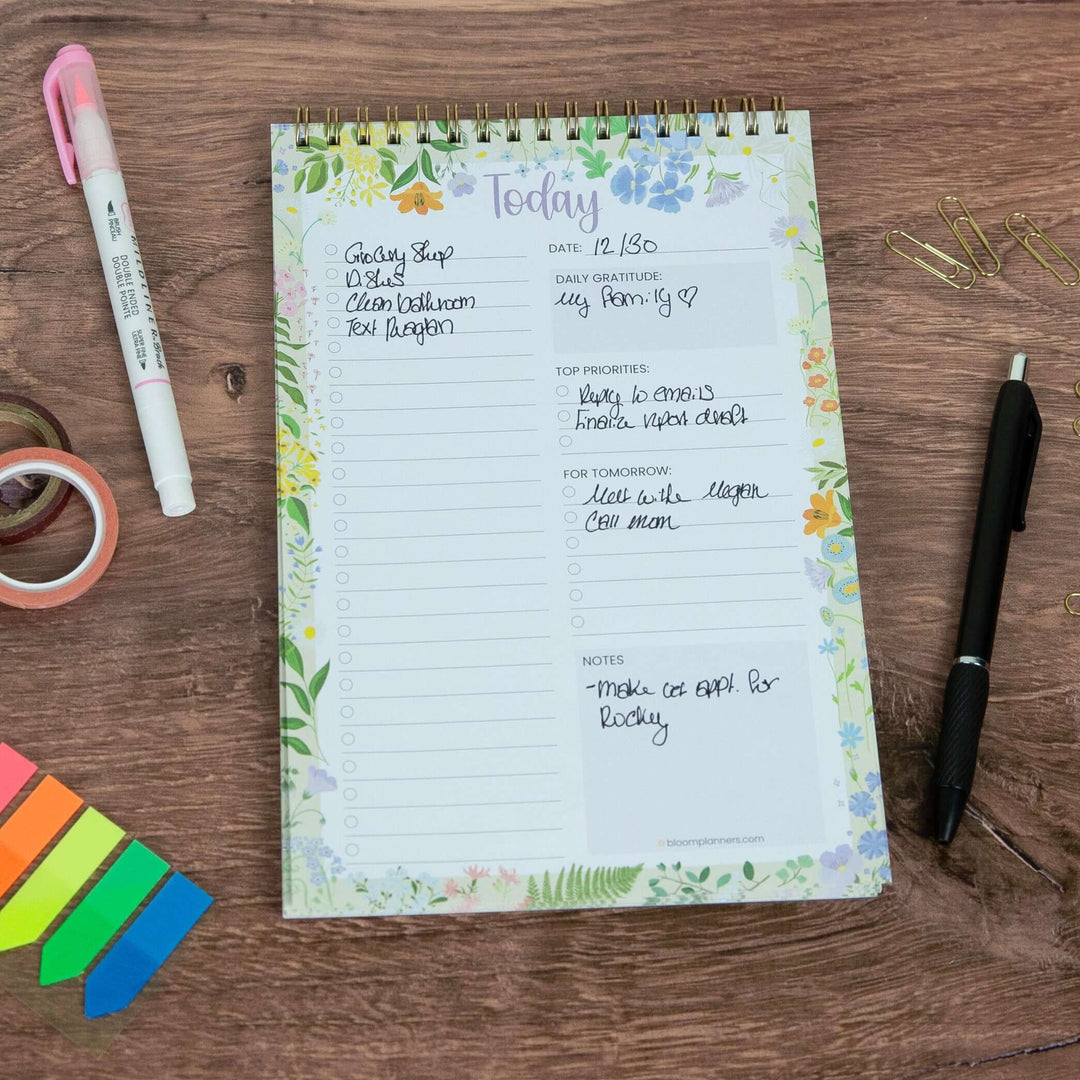 Today
Grocery Shop
Dishes
Clean bathroom
Text Meagan
DATE: 12/30
DAILY GRATITUDE:
My Family ♡
TOP PRIORITIES:
Reply to emails
Finalize report draft
FOR TOMORROW:
Meet with Megan
Call mom
NOTES
-Make vet appt. for
Rocky
bloomplanners.com
MILDLINER Brush
DOUBLE ENDED
DOUBLE POINTE
BRUSH
PINCEAU
SUPER FINE
EXTRA FINE